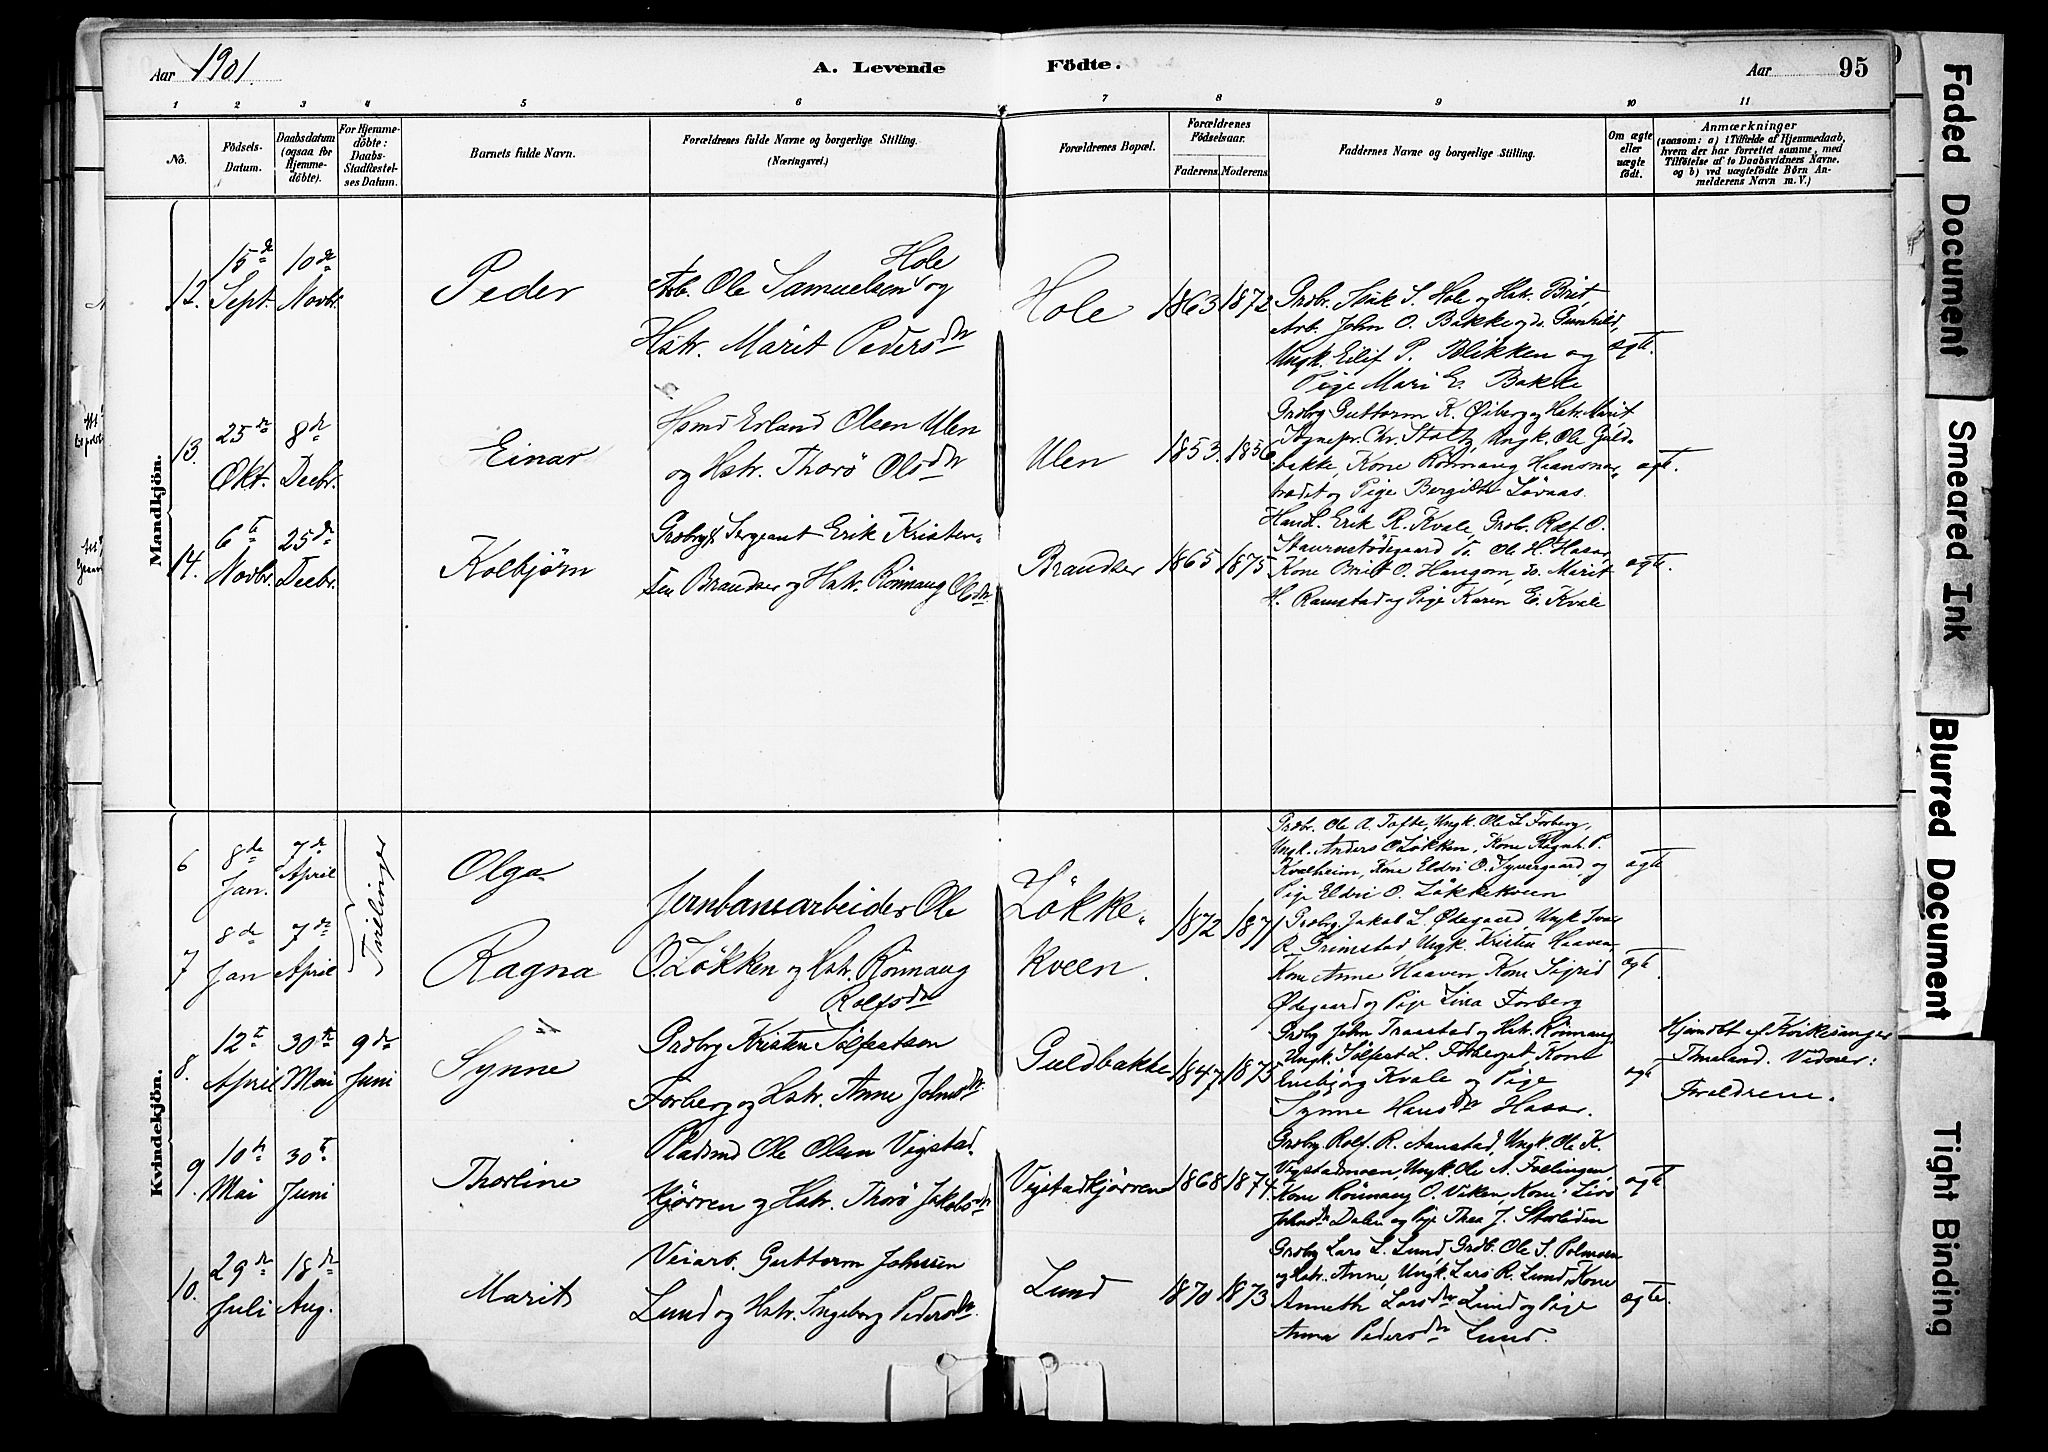 Aar 1901.
A. Levende Födte.
Aar 95
1 2 3 4 5 6 7 8 9 10 11
No.
Födsels-
Datum.
Daabsdatum
(ogsaa for
Hjemme-
döbte).
For Hjemme-
döbte:
Daabs-
Stadfæstel-
ses Datum.
Barnets fulde Navn.
Forældrenes fulde Navne og borgerlige Stilling.
(Næringsvei.)
Forældrenes Bopæl.
Forældrenes
Födselsaar.
Faderens. Moderens.
Faddernes Navne og borgerlige Stilling.
Om ægte
eller
uægte
födt.
Anmærkninger
(saasom: a) i Tilfælde af Hjemmedaab,
hvem der har forrettet samme, med
Tilföielse af to Daabsvidners Navne,
og b) ved uægtefödte Börn An-
melderens Navn m. V.)
Mandkjön.
12.
15de
Sept.
10de
Novbr.
Peder
Arb. Ole Samuelsen Hole og
Hstr. Marit Pedersdtr
Hole
1863 1872
Grdbr. S. Hole og Hstr. Brit,
Arb. John O. Bakke og do. Gunhild,
Ungk. Eilif P. Blikken og
Pige Mari E. Bakke
ægte.
13.
25de
Okt.
8de
Decbr.
Einar
Hsmd Erland Olsen Ulen
og Hstr. Thorö Olsdtr
Ulen
1853. 1856
Grdbrg Guttorm K. Öiberg og Hstr. Marit,
Sognepr. Chr. Stoltz, Ungk. Ole Guld-
bakke, Kone Rönnaug Haansnar-
trædet og Pige Bergitte Lövaas.
ægt.
14.
6te
Novbr.
25de
Decbr.
Kolbjörn
Grdbrg & Sergeant Erik Kristen-
sen Brandser og Hstr. Rönnaug Olsdtr.
Brandser
1865 1875
Handl. Erik R. Kvale, Grdbr. Rolf O.
Staurustödegaard, do. Ole H. Hasar,
Kone Britt O. Haugom, do. Marit
H. Ramstad og Pige Karen E. Kvale
ægte.
Kvindekjön.
6
8de
Jan.
7de
April
Tvillinger
Olga
Jernbanearbeider Ole
O. Løkken og Hstr. Rönnaug
Rolfsdtr
Løkke-
kveen.
1872 1871
Grdbr. Ole A. Tofte, Ungk. Ole L. Forberg,
Ungk. Anders O. Løkken, Kone Ragnh. P.
Kvalheim, Kone Eldri O. Syvergaard, og
Pige Eldri O. Løkkekveen
ægte
7
8de
Jan
7de
April
Ragna
Grdbrg Jakob L. Ødegaard, Ungk Ivar
Grimstad, Ungk. Kristen Haaven,
Kone Anne Haaven, Kone Sigrid
Ødegaard og Pige Lina Forberg
ægte
8.
12te
April
30te
Mai
9de
Juni
Synne
Grdbrg Kristen Solfestsen
Forberg og Hstr. Anne Johnsdtr.
Guldbakke
1847 1875
Grdbrg John Traastad og Hstr. Rönnaug,
Ungk. Solfest L. Forberget, Kone
Ingebjörg Kvale og Pige
Synne Hansdtr Hasar.
ægt
Hjemdöbt af
Vidner:
Foreldrene.
9.
10de
Mai
30te
Juni
Thorline
Pladsmd Ole Olsen Vigstad-
kjörren og Hstr. Thorö Jakobsdtr
Vigstadkjörren
1868 1874
Grdbrg Rolf R. Aanstad, Ungk. Ole K.
Vigstadmoen, Ungk. Ole A. Frelingen,
Kone Rönnaug O. Viken, Kone Live
Johnsdtr Dalen og Pige Thea J. Storliden
ægte
10.
29de
Juli
18de
Aug.
Marit
Veiarb. Guttorm Johnsen
Lund og Hstr. Ingeborg Pedersdtr.
Lund
1870 1873
Grdbrg Lars L. Lund, Grdb. Ole S. Polmoen
og Hstr. Anne, Ungk. Lars R. Lund, Kone
Anneth Larsdtr Lund og Pige
Anna Pedersdtr Lund.
ægte.
Faded Document
Smeared Ink
Blurred Document
Tight Binding